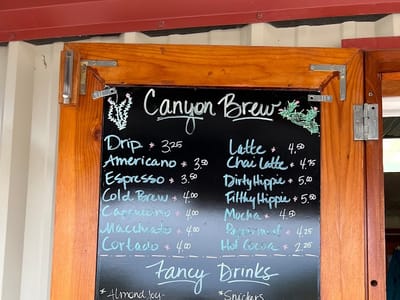 Canyon Brew
Drip * 3.25
Americano * 3.50
Espresso * 3.50
Cold Brew * 4.00
Cappuccino * 4.00
Macchiato * 4.00
Cortado * 4.00
Latte * 4.50
Chai Latte * 4.75
Dirty Hippie * 5.00
Filthy Hippie * 5.50
Mocha * 4.50
* 4.25
Hot Cocoa * 2.25
Fancy Drinks
*Almond Joy-
*Snickers